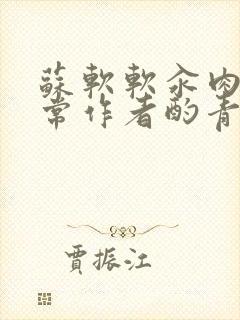 蘇軟軟汆肉
常作者酌青
賈振江